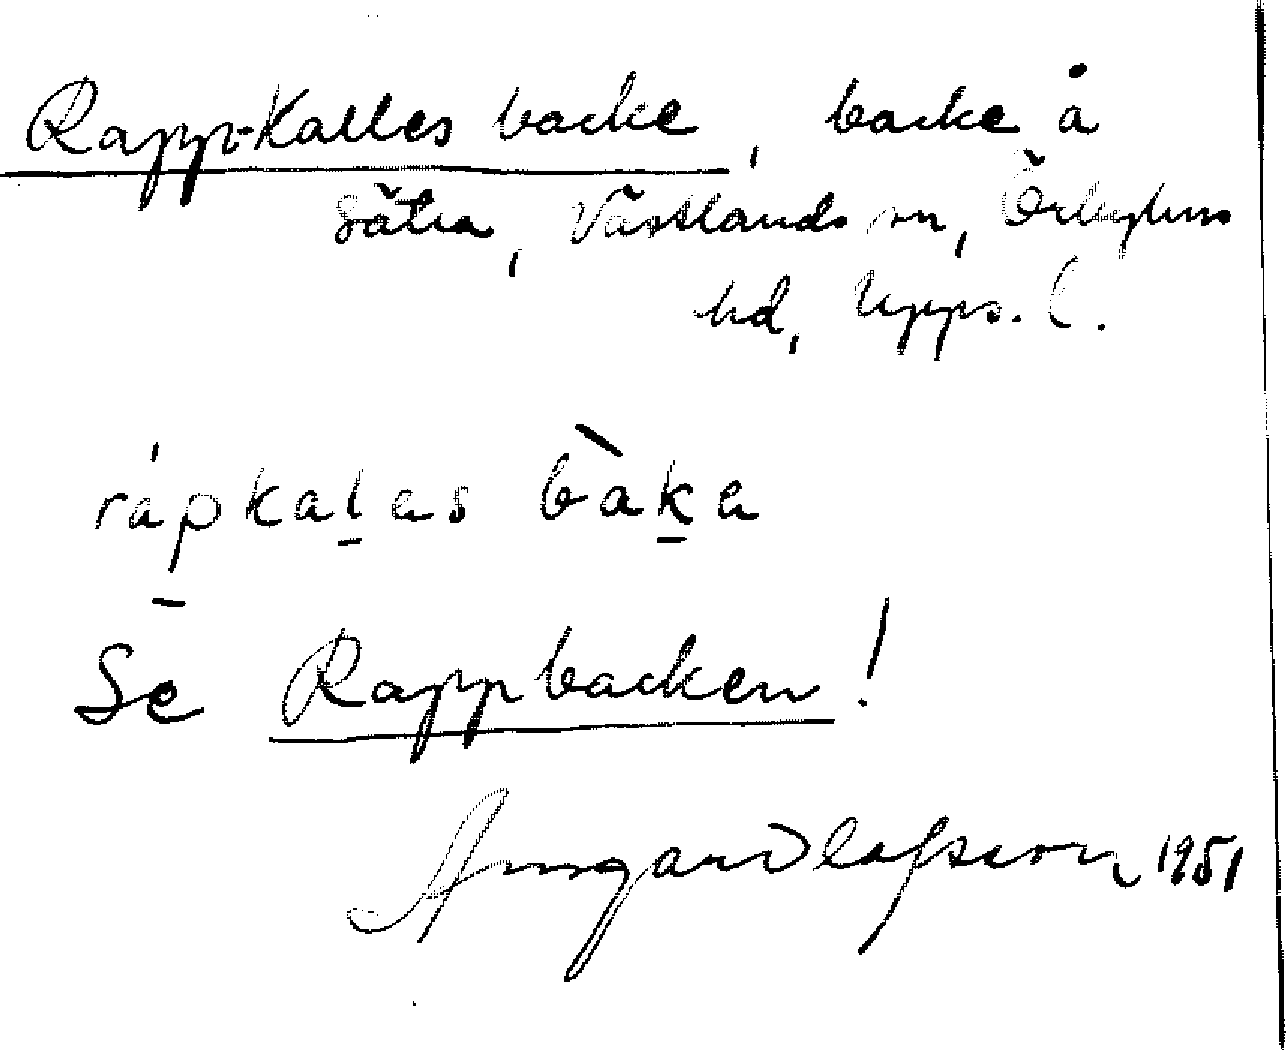 Rapp-Kalles backe, backe å
Sätra, Västlands sn, Örbyhus
hd, Upps. l.
rápkaḻas bàḵa
Se Rappbacken!
Ansgar Olofsson 1951